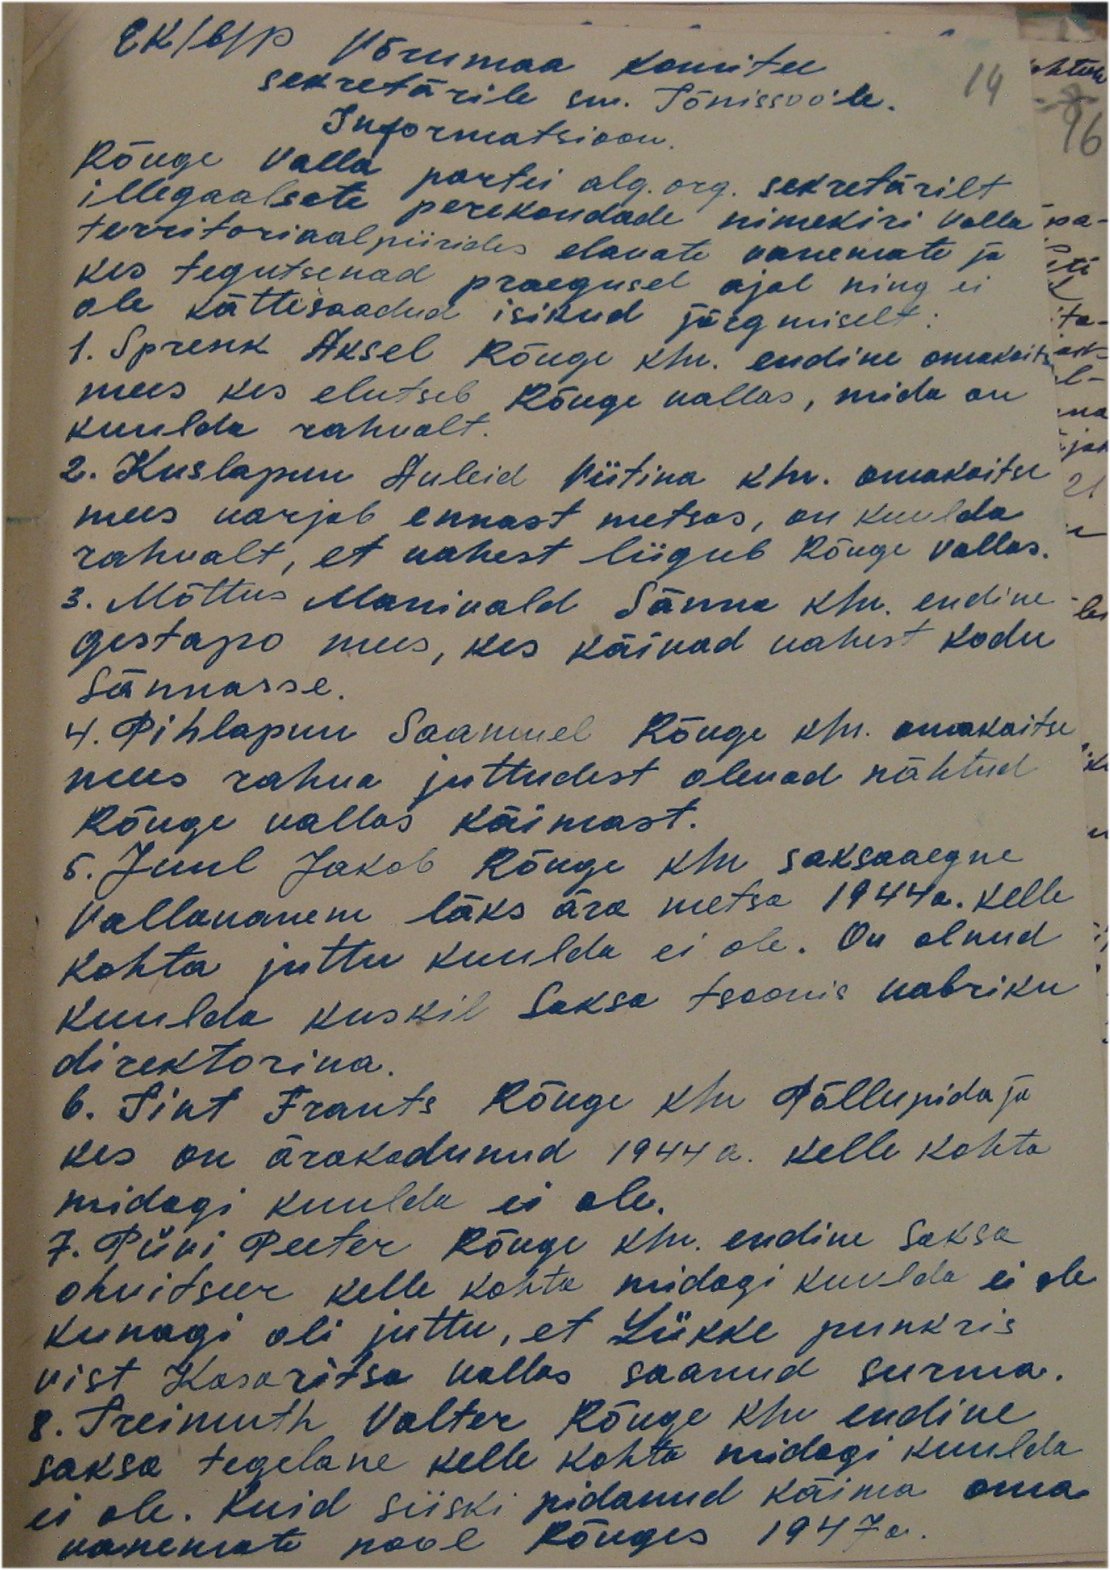 EK/b/P Võrumaa Komitee
sekretärile sm. Tõnissoo'le.
14
96
Informatsioon.
Rõuge Valla partei alg. org. sekretärilt
illegaalsete perekondade nimekiri valla
territoriaalpiirides elavate vanemate ja
kes tegutsenad praegusel ajal ning ei
ole kättesaadud isikud järgmiselt:
1. Sprenk Aksel Rõuge khn. endine omakaitse
mees kes elutseb Rõuge vallas, mida on
kuulda rahvalt.
2. Kuslapuu Auleid Viitina khn. omakaitse
mees varjab ennast metsas, on kuulda
rahvalt, et vahest liigub Rõuge vallas.
3. Mõttus Manivald Sänna khn. endine
gestapo mees, kes käivad vahest kodu
Sännasse.
4. Pihlapuu Saamuel Rõuge khn. omakaitse
mees rahva juttudest olevad nähtud
Rõuge vallas käimast.
5. Juul Jakob Rõuge khn saksaaegne
Vallavanem läks ära metsa 1944a. kelle
kohta juttu kuulda ei ole. On olnud
kuulda kuskil Saksa tsoonis vabriku
direktorina.
6. Tint Frants Rõuge khn Põllupidaja
kes on ärakadunud 1944 a. kelle kohta
midagi kuulda ei ole.
7. Piivi Peeter Rõuge khn. endine Saksa
ohvitseer kelle kohta midagi kuulda ei ole
kunagi oli juttu, et Lükke punkris
vist Kasaritsa vallas saanud surma.
8. Treimuth Valter Rõuge khn endine
saksa tegelane kelle kohta midagi kuulda
ei ole. Kuid siiski pidanud käima oma
vanemate pool Rõuges 1947a.